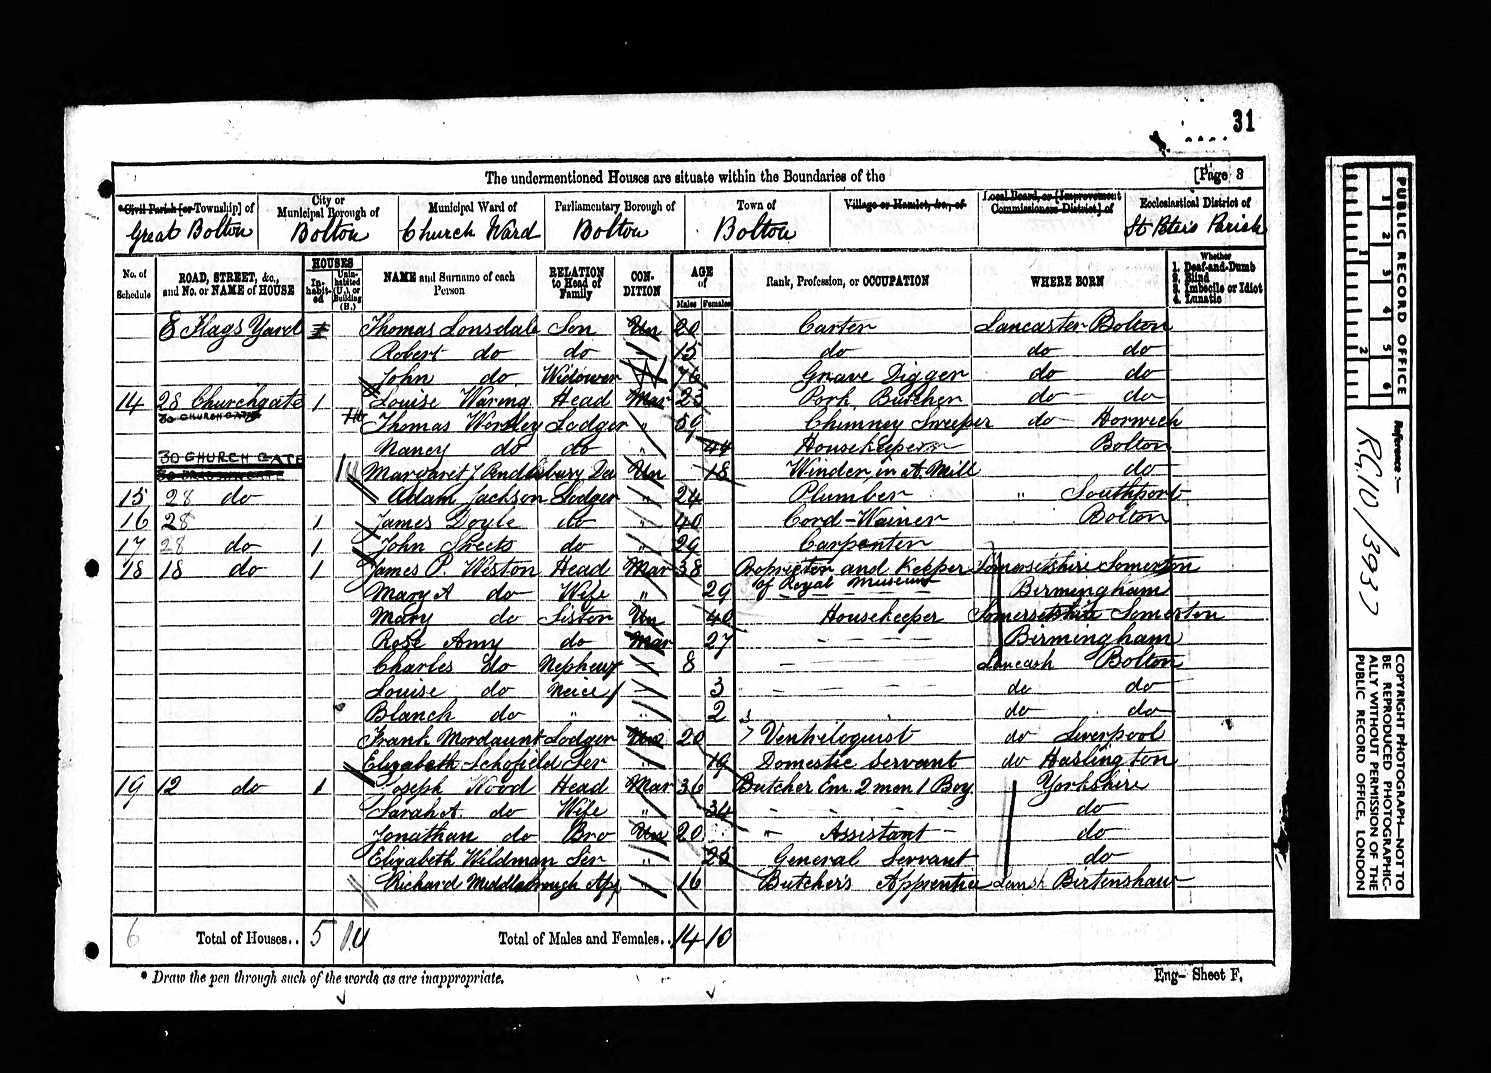 31
The undermentioned Houses are situate within the Boundaries of the [Page 3
*Civil Parish [or Township] of
Great Bolton
City or Municipal Borough of
Bolton
Municipal Ward of
Church Ward
Parliamentary Borough of
Bolton
Town of
Bolton
Village or Hamlet, &c., of
Local Board, or [Improvement Commissioners District] of
Ecclesiastical District of
St Peters Parish
No. of Schedule
ROAD, STREET, &c., and No. or NAME of HOUSE
HOUSES
Inhabited
Uninhabited (U.), or Building (B.)
NAME and Surname of each Person
RELATION to Head of Family
CONDITION
AGE of
Males Females
Rank, Profession, or OCCUPATION
WHERE BORN
Whether
1. Deaf-and-Dumb
2. Blind
3. Imbecile or Idiot
4. Lunatic
8 Flags Yard Thomas Lonsdale Son Un 20 Carter Lancaster Bolton
Robert do do 15 do do do
John do Widower 76 Grave Digger do do
14 28 Churchgate 1 Louise Waring Head Mar 23 Pork Butcher do do
30 CHURCH GATE Thomas Worsley Lodger " 59 Chimney Sweeper do Horwich
Nancy do do " 44 Housekeeper Bolton
30 CHURCH GATE Margaret Un 18 Winder in A Mill do
15 28 do Adam Jackson Lodger " 24 Plumber " Southport
16 28 1 James Doyle do " 40 Cord-Wainer Bolton
17 28 do 1 John Streets do " 29 Carpenter
18 18 do 1 James P. Weston Head Mar 38 Proprietor and Keeper Somersetshire Somerton
of Royal Museum
Mary A do Wife " 29 Birmingham
Mary do Sister Un 40 Housekeeper Somersetshire Somerton
Rose Amy do Mar 27 Birmingham
Charles do Nephew 8 Lancash Bolton
Louise do Neice 3 do do
Blanch do " 2 do do
Frank Mordaunt Lodger Un 20 Ventriloquist do Liverpool
Elizabeth Schofield Ser 19 Domestic Servant do Haslington
19 12 do 1 Joseph Wood Head Mar 36 Butcher Em. 2 men 1 Boy Yorkshire
Sarah A. do Wife " 34 do
Jonathan do Bro Un 20 " Assistant do
Elizabeth Wildman Ser " 25 General Servant do
Richard Middlebrough App " 16 Butcher's Apprentice Lansh Birtenshaw
6 Total of Houses.. 5 Total of Males and Females.. 14 10
* Draw the pen through such of the words as are inappropriate.
Eng- Sheet F.
PUBLIC RECORD OFFICE
1 2 3 4 5 6
1 2
Reference :-
RG10/3937
COPYRIGHT PHOTOGRAPH—NOT TO
BE REPRODUCED PHOTOGRAPHIC-
ALLY WITHOUT PERMISSION OF THE
PUBLIC RECORD OFFICE, LONDON